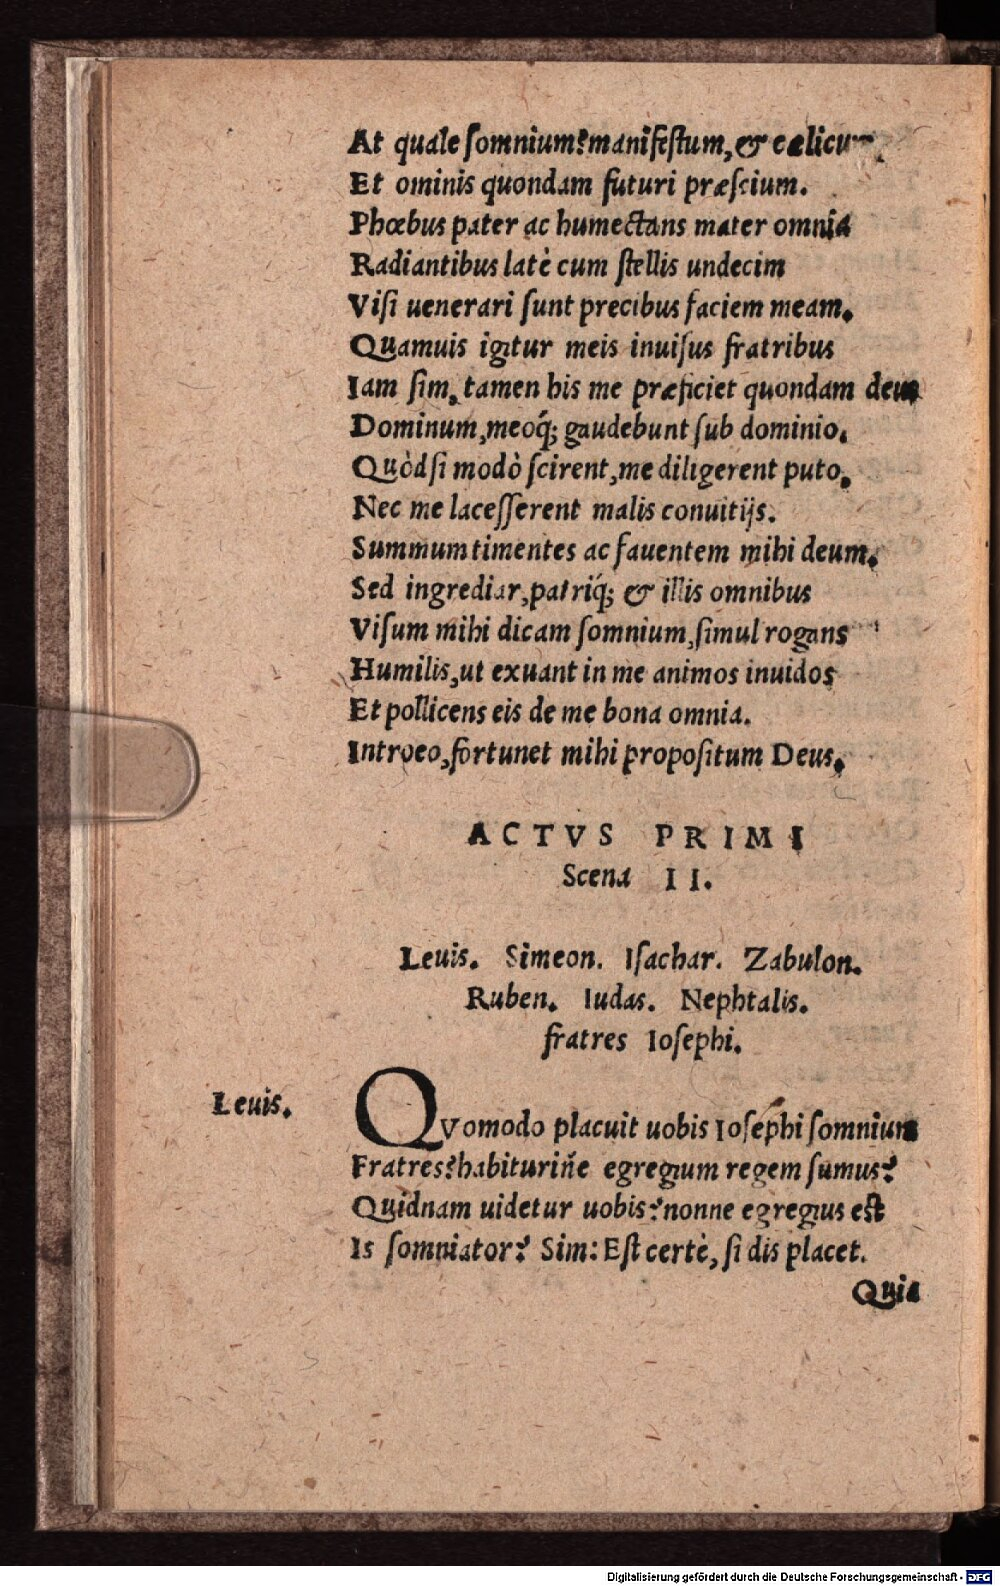 At quale ſomnium? manifeſtum, & cælicum,
Et ominis quondam futuri præſcium.
Phœbus pater ac humectans mater omnia
Radiantibus latè cum ſtellis undecim
Viſi uenerari ſunt precibus faciem meam.
Quamuis igitur meis inuiſus fratribus
Iam ſim, tamen his me præficiet quondam deus
Dominum, meoq́; gaudebunt ſub dominio.
Quòd ſi modò ſcirent, me diligerent puto,
Nec me laceſſerent malis conuitijs.
Summum timentes ac fauentem mihi deum.
Sed ingrediar, patriq́; & illis omnibus
Viſum mihi dicam ſomnium, ſimul rogans
Humilis, ut exuant in me animos inuidos
Et pollicens eis de me bona omnia.
Introeo, fortunet mihi propoſitum Deus.
ACTVS PRIMI
Scena II.
Leuis. Simeon. Iſachar. Zabulon.
Ruben. Iudas. Nephtalis.
fratres Ioſephi.
Leuis. QVomodo placuit uobis Ioſephi ſomnium
Fratres? habituriñe egregium regem ſumus?
Quidnam uidetur uobis? nonne egregius eſt
Is ſomniator? Sim: Eſt certè, ſi dis placet.
Quia
Digitalisierung gefördert durch die Deutsche Forschungsgemeinschaft - DFG